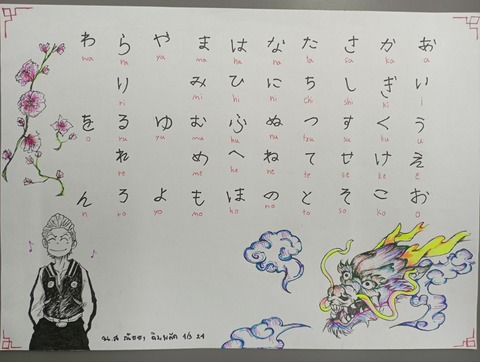 わ ら や ま は な た さ か あ
wa ra ya ma ha na ta sa ka a
り み ひ に ち し き い
ri mi hi ni chi shi ki i
を る ゆ む ふ ぬ つ す く う
o ru yu mu hu nu tzu su ku u
れ め へ ね て せ け え
re me he ne te se ke e
ん ろ よ も ほ の と そ こ お
n ro yo mo ho no to so ko o
น.ส